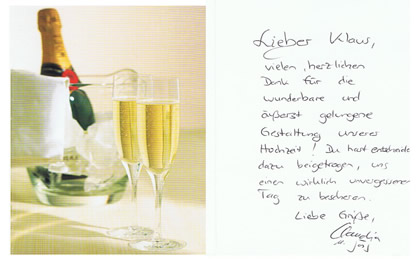 Lieber Klaus,
vielen, herzlichen
Dank für die
wunderbare und
äußerst gelungene
Gestaltung unserer
Hochzeit! Du hast entscheidend
dazu beigetragen, uns
einen wirklich unvergessenen
Tag zu bescheren.
Liebe Grüße,
Claudia